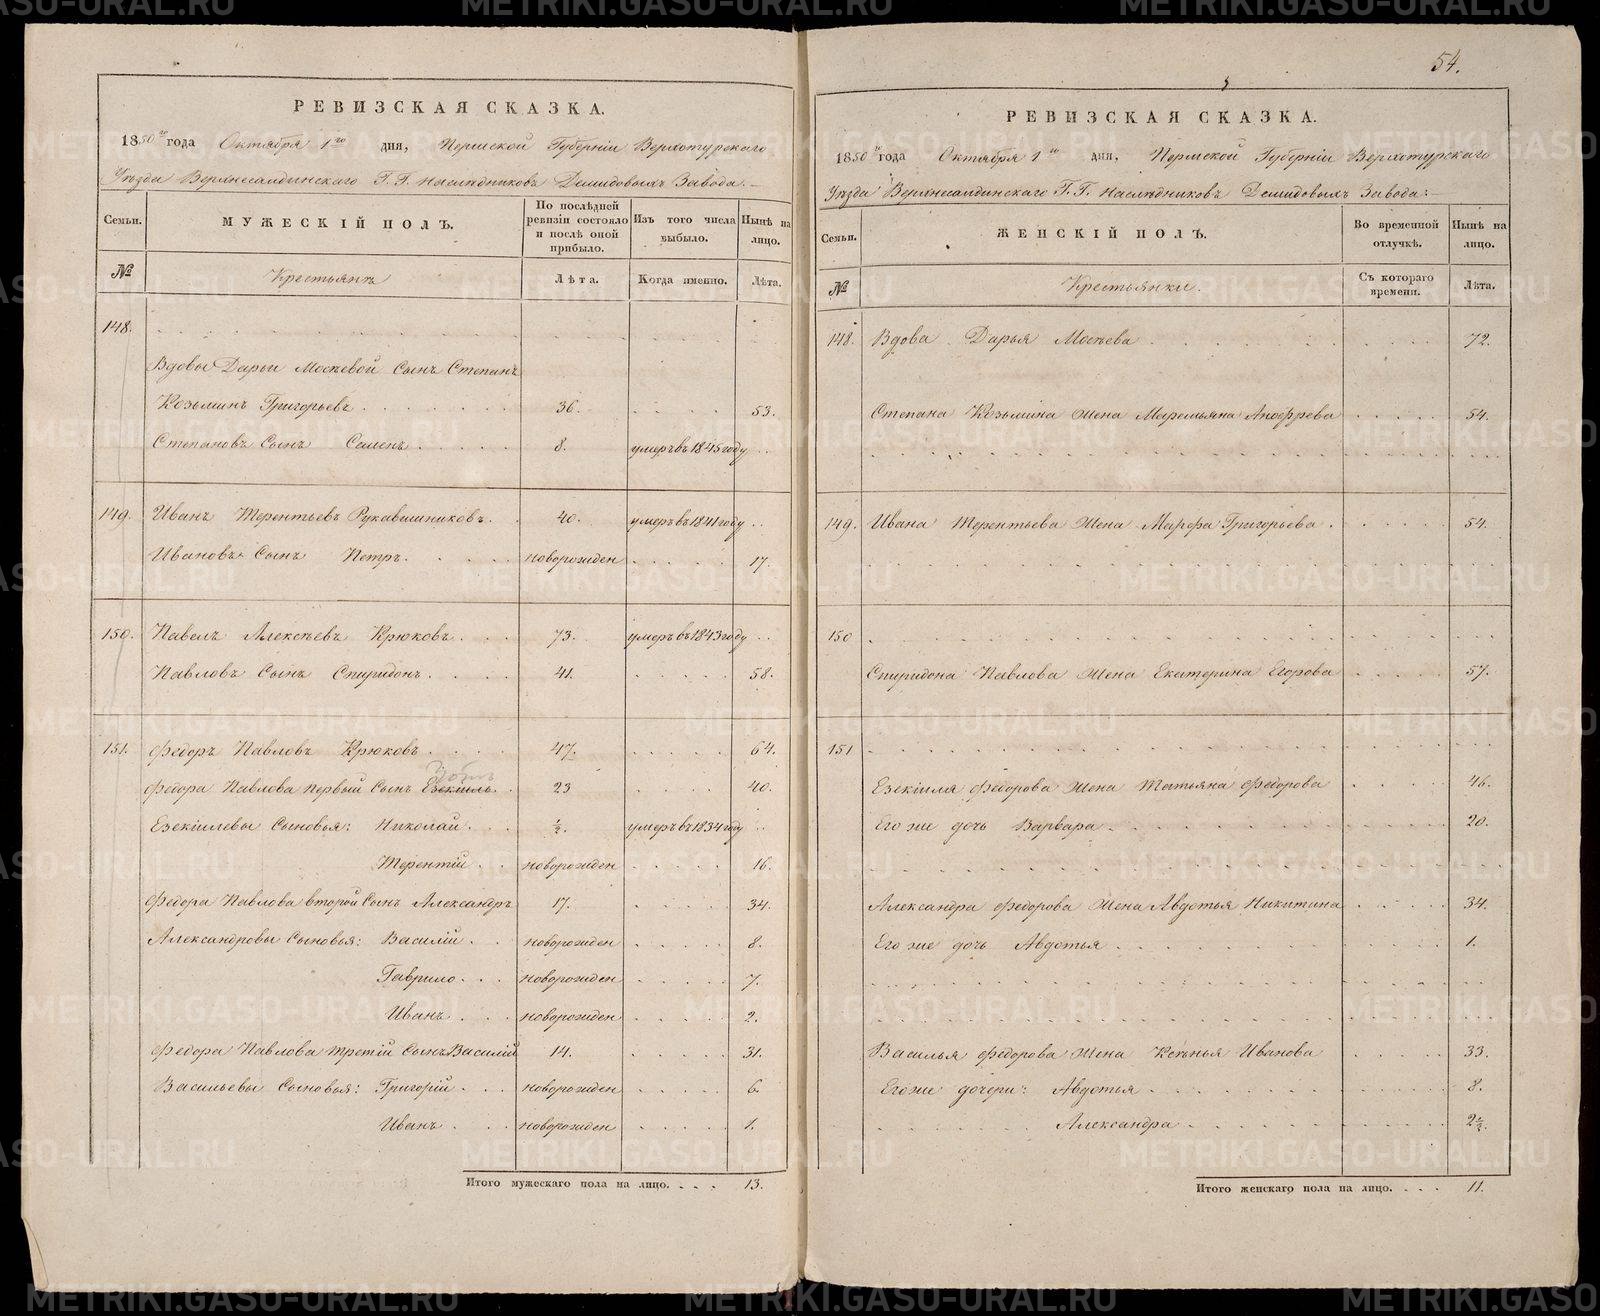 54.
РЕВИЗСКАЯ СКАЗКА.
1850го года Октября 1го дня, Пермской Губерніи Верхотурскаго
Уѣзда Верхнесалдинскаго Г.Г. Наслѣдниковъ Демидовыхъ Завода.
Семьи.
МУЖЕСКІЙ ПОЛЪ.
По послѣдней ревизіи состояло и послѣ оной прибыло.
Изъ того числа выбыло.
Нынѣ на лицо.
№
Крестьянъ
Лѣта.
Когда именно.
Лѣта.
148.
Вдовы Дарьи Мосѣевой Сынъ Степанъ
Козьминъ Григорьевъ 36. 53.
Степановъ Сынъ Семенъ 8. умеръ въ 1845 году
149. Иванъ Терентьевъ Рукавишниковъ. 40. умеръ въ 1841 году
Ивановъ Сынъ Петръ. новорожден 17.
150. Павелъ Алексѣевъ Крюковъ 73. умеръ въ 1843 году
Павловъ Сынъ Спиридонъ. 41. 58.
151. Федоръ Павловъ Крюковъ 47. 64.
Федора Павлова первый Сынъ Езекіиль. 23 40.
Езекіилевы Сыновья: Николай. ½. умеръ въ 1834 году
Терентій новорожден 16.
Федора Павлова второй Сынъ Александръ 17. 34.
Александровы Сыновья: Василій новорожден 8.
Гаврило новорожден 7.
Иванъ новорожден 2.
Федора Павлова третій Сынъ Василій 14. 31.
Васильевы Сыновья: Григорій новорожден 6.
Иванъ новорожден 1.
Итого мужескаго пола на лицо. 13.
РЕВИЗСКАЯ СКАЗКА.
1850го года Октября 1го дня, Пермской Губерніи Верхотурскаго
Уѣзда Верхнесалдинскаго Г.Г. Наслѣдниковъ Демидовыхъ Завода:
Семьи.
ЖЕНСКІЙ ПОЛЪ.
Во временной отлучкѣ.
Нынѣ на лицо.
№
Крестьянки.
Съ котораго времени.
Лѣта.
148. Вдова Дарья Мосѣева 72.
Степана Козьмина Жена Маремьяна 54.
149. Ивана Терентьева Жена Марфа Григорьева. 54.
150
Спиридона Павлова Жена Екатерина Егорова 57.
151
Езекіиля Федорова Жена Татьяна Федорова 46.
Его же дочь Варвара 20.
Александра Федорова Жена Авдотья Никитина 34.
Его же дочь Авдотья 1.
Василья Федорова Жена Ксѣнья Иванова 33.
Его же дочери: Авдотья 8.
Александра 2½.
Итого женскаго пола на лицо. 11.
METRIKI.GASO-URAL.RU